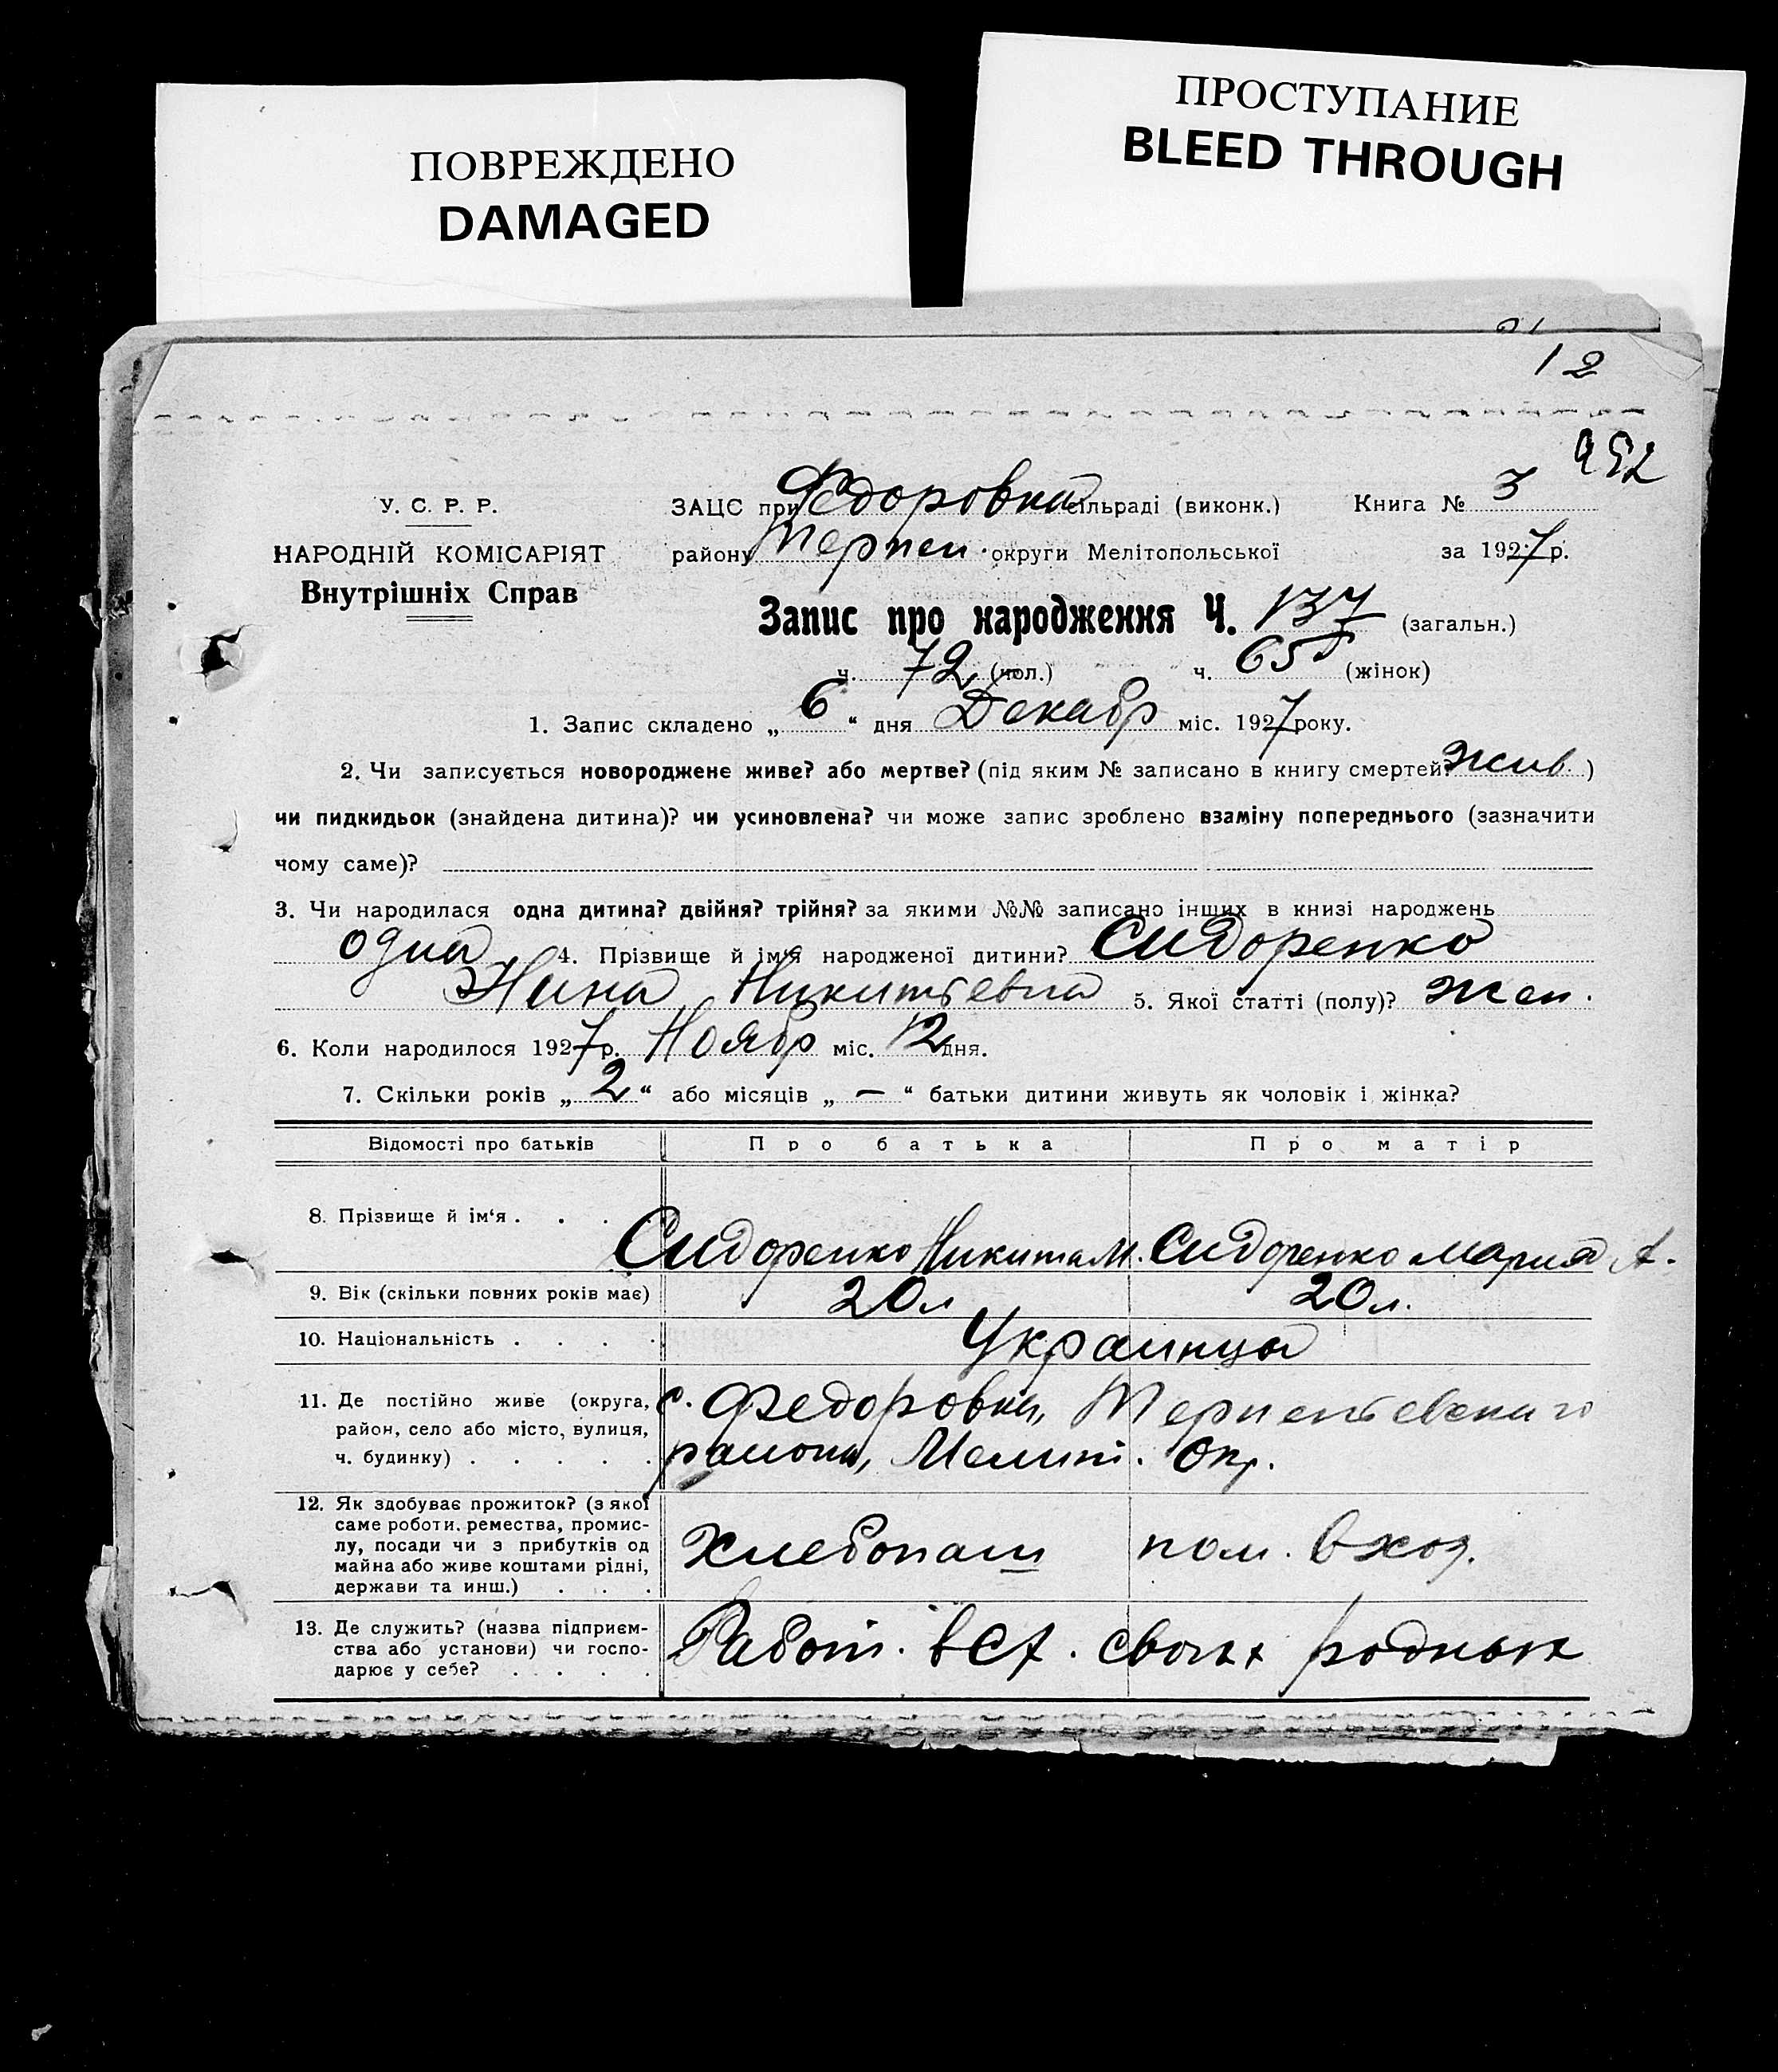 ПОВРЕЖДЕНО
DAMAGED
ПРОСТУПАНИЕ
BLEED THROUGH
12
952
У. С. Р. Р.
НАРОДНІЙ КОМІСАРІЯТ
Внутрішніх Справ
ЗАЦС при Федоровка сільраді (виконк.) Книга № 3
району Терпен. округи Мелітопольської за 1927 р.
Запис про народження Ч. 137 (загальн.)
ч. 72 (чол.) ч. 65 (жінок)
1. Запис складено „ 6 “ дня Декабр міс. 1927 року.
2. Чи записується новороджене живе? або мертве? (під яким № записано в книгу смертей? жив. )
чи пидкидьок (знайдена дитина)? чи усиновлена? чи може запис зроблено взаміну попереднього (зазначити
чому саме)?
3. Чи народилася одна дитина? двійня? трійня? за якими №№ записано інших в книзі народжень
одна 4. Прізвище й ім'я народженої дитини? Сидоренко
Нина Никитьевна 5. Якої статті (полу)? жен.
6. Коли народилося 1927 р. Ноябр міс. 12 дня.
7. Скільки років „ 2 “ або місяців „ — “ батьки дитини живуть як чоловік і жінка?
Відомості про батьків Про батька Про матір
8. Прізвище й ім‘я . . . .
Сидоренко Никита М. Сидоренко Мария А.
9. Вік (скільки повних років має) 20 л 20 л.
10. Національність . . . . Украинцы
11. Де постійно живе (округа,
район, село або місто, вулиця,
ч. будинку) . . . . .
с. Федоровка, Терпеньевского
района, Мелит. Окр.
12. Як здобуває прожиток? (з якої
саме роботи, ремества, промис-
лу, посади чи з прибутків од
майна або живе коштами рідні,
держави та инш.) . . .
Хлебопаш пом. в хоз.
13. Де служить? (назва підприєм-
ства або установи) чи госпо-
дарює у себе? . . . . .
Работ. в сх. своих родных